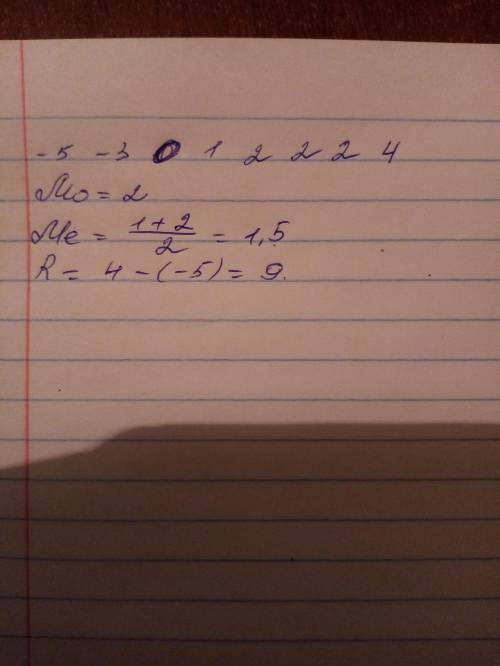 -5 -3 0 1 2 2 2 4
Mo = 2
Me = \frac{1+2}{2} = 1,5
R = 4 - (-5) = 9.